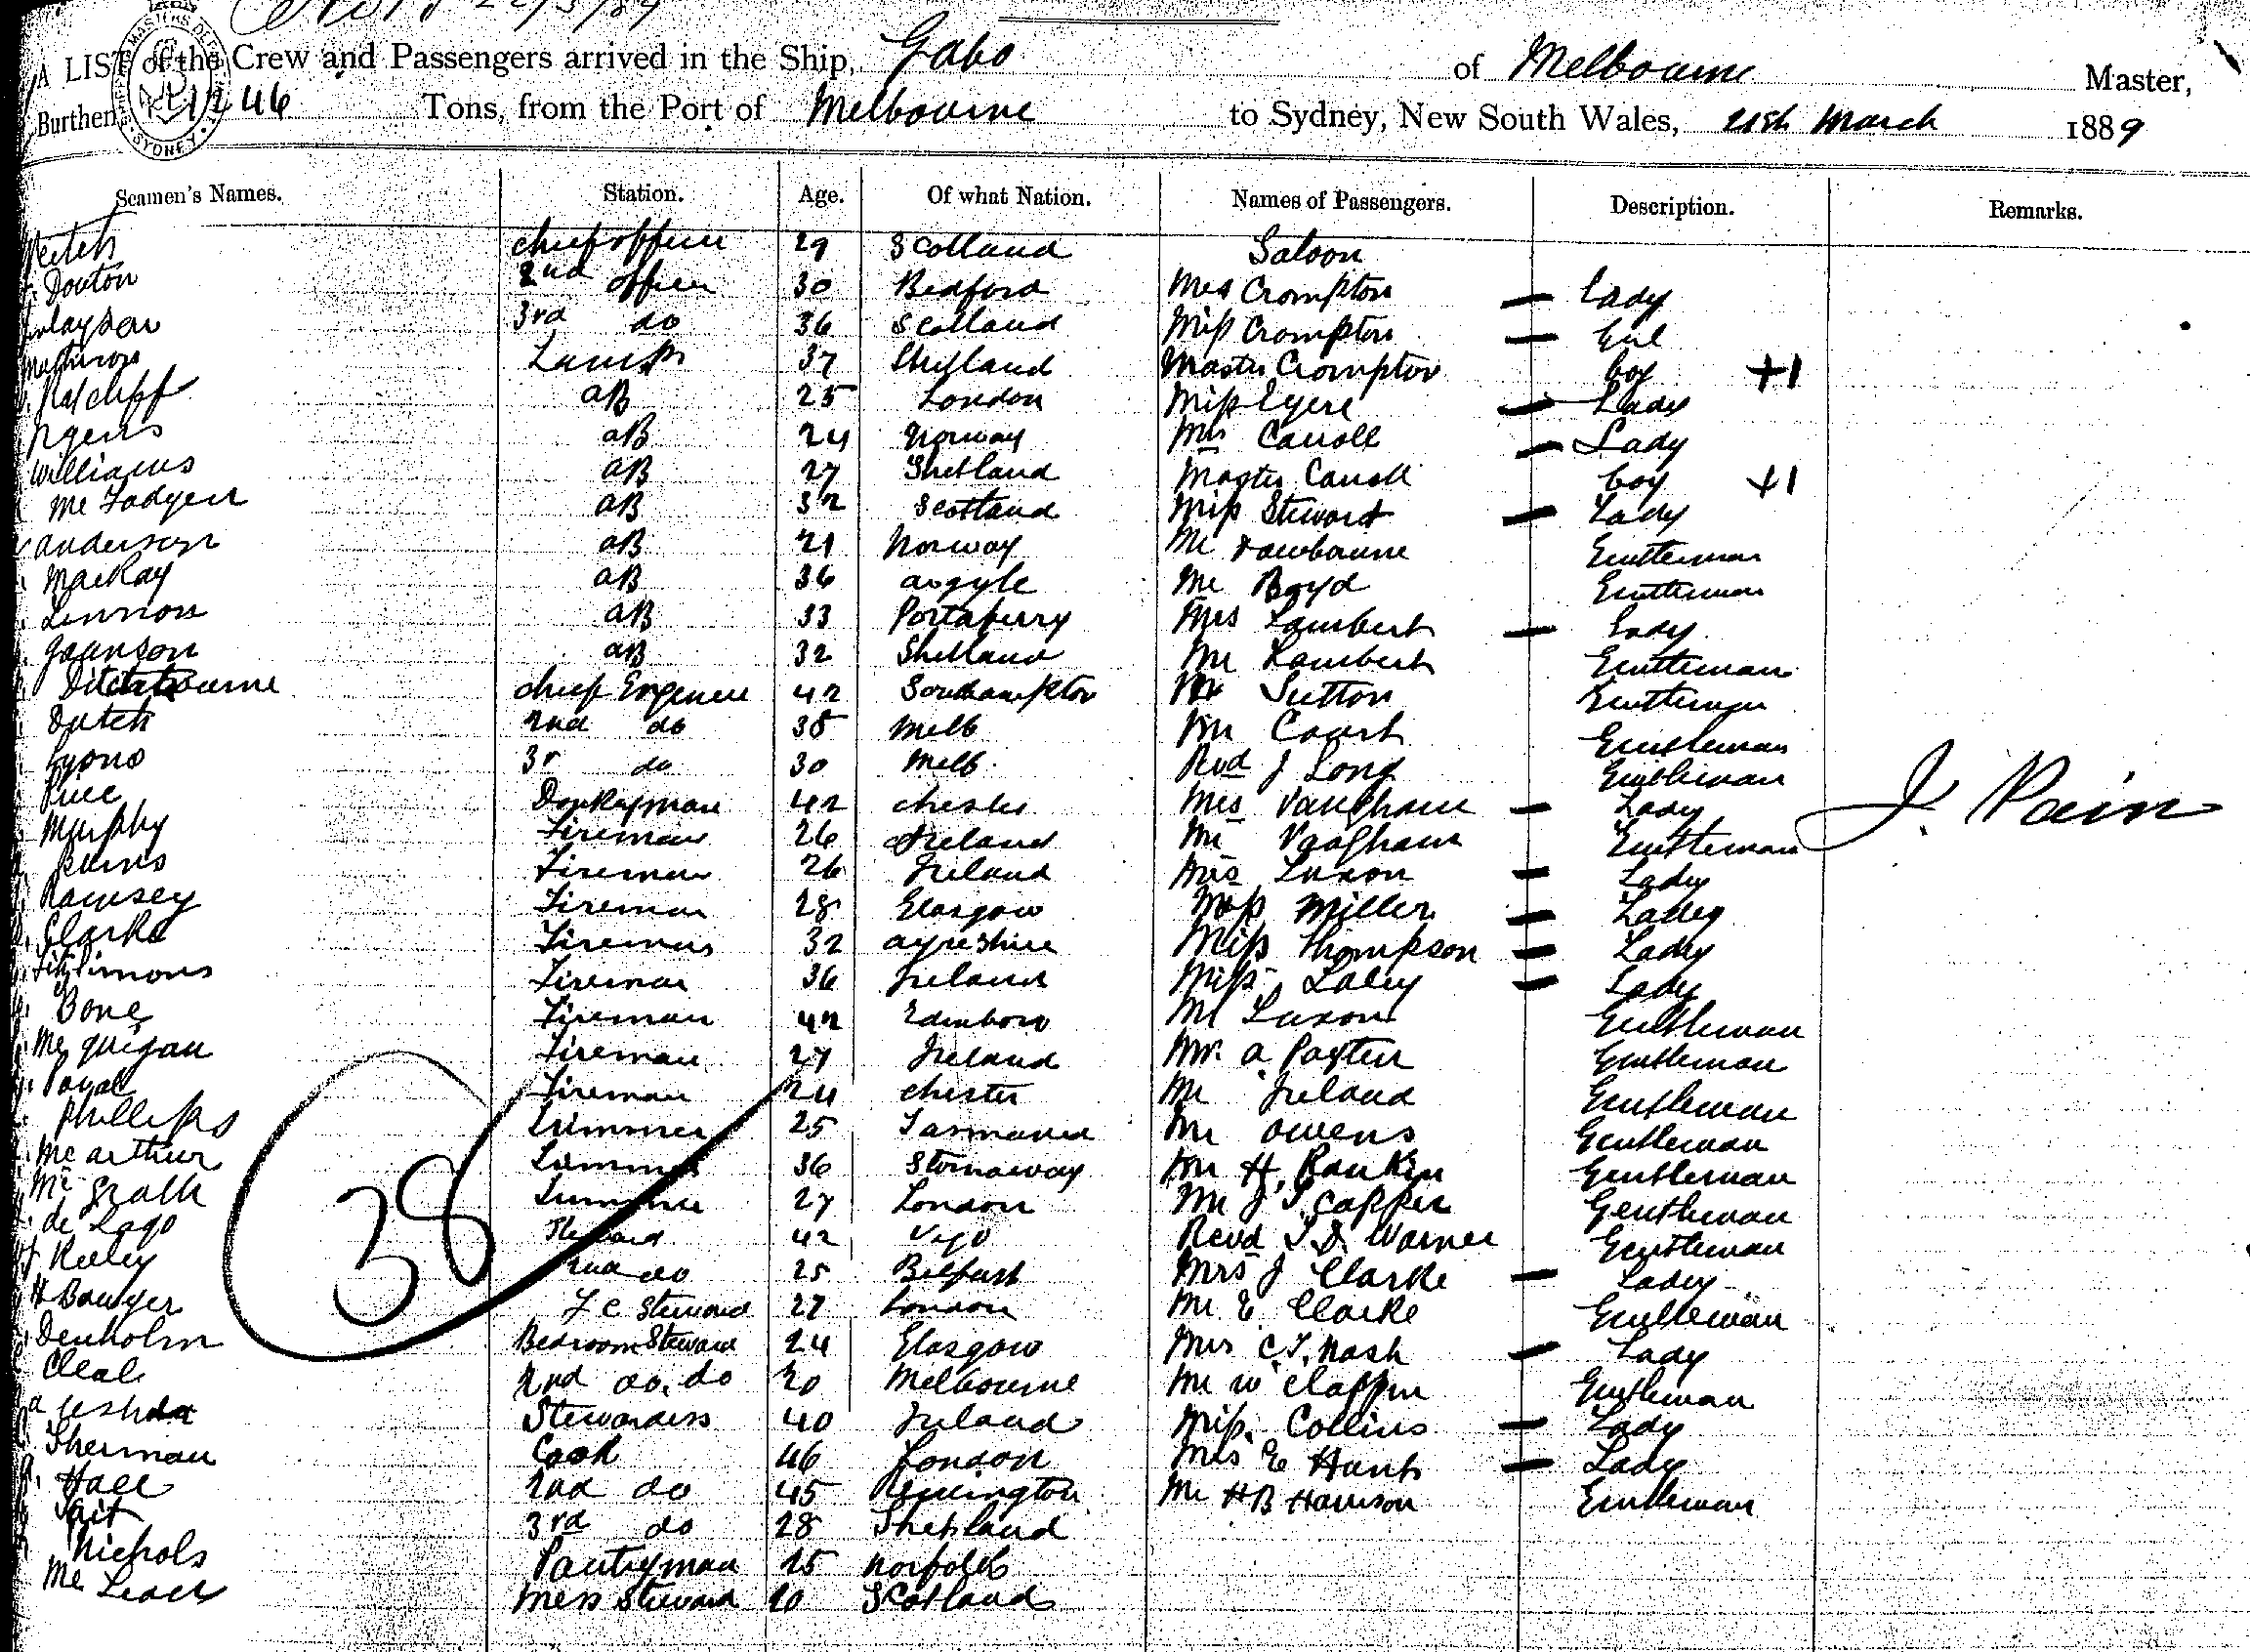 A LIST of the Crew and Passengers arrived in the Ship, Gabo of Melbourne Master,
Burthen 1246 Tons, from the Port of Melbourne to Sydney, New South Wales, 21st March 1889
SYDNEY
Seamen's Names. Station. Age. Of what Nation. Names of Passengers. Description. Remarks.
Veitch chief officer 29 Scotland Saloon
Douton 2nd officer 30 Bedford Mrs Crompton Lady
3rd do 36 Scotland Miss Crompton Girl
Lamps 37 Shetland Master Crompton boy +1
Ratcliff aB 25 London Miss Lady
aB 24 Norway Mrs Carroll Lady
Williams aB 27 Shetland Master Carroll boy +1
Mc Fadyen aB 32 Scotland Miss Steward Lady
anderson aB 21 Norway Mr Gentleman
MacKay aB 36 argyle Mr Boyd Gentleman
Lennon aB 33 Portaferry Mrs Lambert Lady
Joanson aB 32 Shetland Mr Lambert Gentleman
chief Engineer 42 Southampton Mr Sutton Gentleman
Dutch 2nd do 38 Melb Mr Court Gentleman
Lyons 3r do 30 Melb. Revd J Long Gentleman
Donkeyman 42 chester Mrs Vaughann Lady
Murphy Fireman 26 Ireland Mr Vaughann Gentleman J. Pain
Fireman 26 Ireland Mrs Luxon Lady
Ramsey Fireman 28 Glasgow Miss Miller Lady
Clarke Fireman 32 ayreshire Miss Thompson Lady
Fitzsimons Fireman 36 Ireland Miss Lady
Bone Fireman 42 Edinboro Mr Luxon Gentleman
Mc guigan Fireman 27 Ireland Mr. a Gentleman
Fireman 24 chester Mr Ireland Gentleman
Phillips Trimmer 25 Tasmania Mr Owens Gentleman
Mc arthur Trimmer 36 Stornaway Mr H. Rankin Gentleman
Mc Grath Trimmer 27 London Mr J S Capper Gentleman
de Lago Steward 42 Vigo Revd T. D. Warner Gentleman
Keeley 2nd do 25 Belfast Mrs J Clarke Lady
H Bowyer F C Steward 27 London Mr E Clarke Gentleman
Denholm Bedroom Steward 24 Glasgow Mrs C. T. Nash Lady
Cleal 2nd do. do 20 Melbourne Mr W Clappin Gentleman
Stewardess 40 Ireland Miss Collins Lady
Sherman Cook 46 London Mrs E Hunt Lady
Hall 2nd do 45 Kensington Mr H B Harrison Gentleman
Tait 3rd do 28 Shetland
Nichols Pantryman 25 Norfolk
Mc Leach Mess Steward 20 Scotland
38